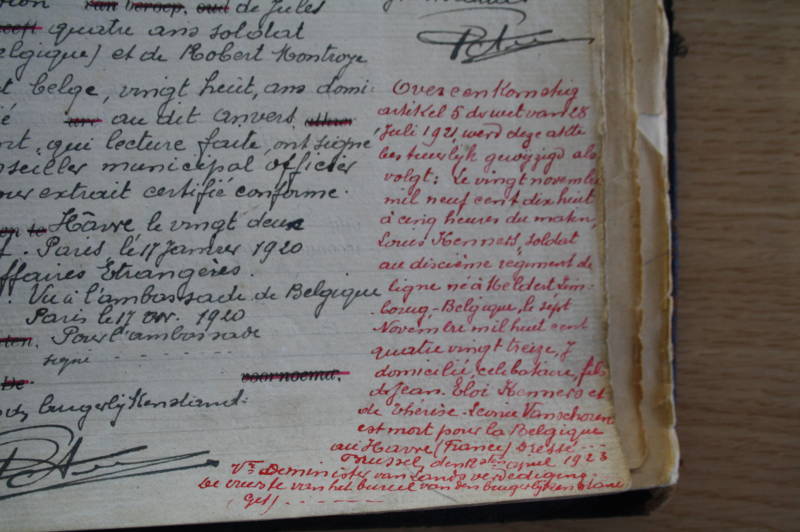 van beroep, oud de Jules
quatre ans soldat
elgique) et de Robert Montroye
t belge, vingt huit, ans domi-
ié au dit Anvers
ort, qui lecture faite, ont signé
nseiller municipal officier
our extrait certifié conforme.
Hâvre le vingt deux
f. Paris le 17 Janvier 1920
ffaires Etrangères.
Vu à l'ambassade de Belgique
Paris le 17 1920
Pour l'ambassade
signé
De voornoemd,
burgerlijken stand:
Overeenkomstig
artikel 5 der wet van 28
Juli 1921 werd deze akte
bestuurlijk gewijzigd als
volgt: Le vingt novembre
mil neuf cent dix huit
à cinq heures du matin,
Louis Kenness, soldat
au dixième régiment de
ligne né à Meldert Lim-
bourg-Belgique, le sept
Novembre mil huit cent
quatre vingt treize, y
domicilié, célibataire, fils
de Jean Eloi Kenness et
de Thérèse Leonie Vanschoren
est mort pour la Belgique
au Havre (France) Dressé
Brussel, den april 1923
Vr De minister van Landsverdediging
De van het bureel van den burgerlijken stand
(get)